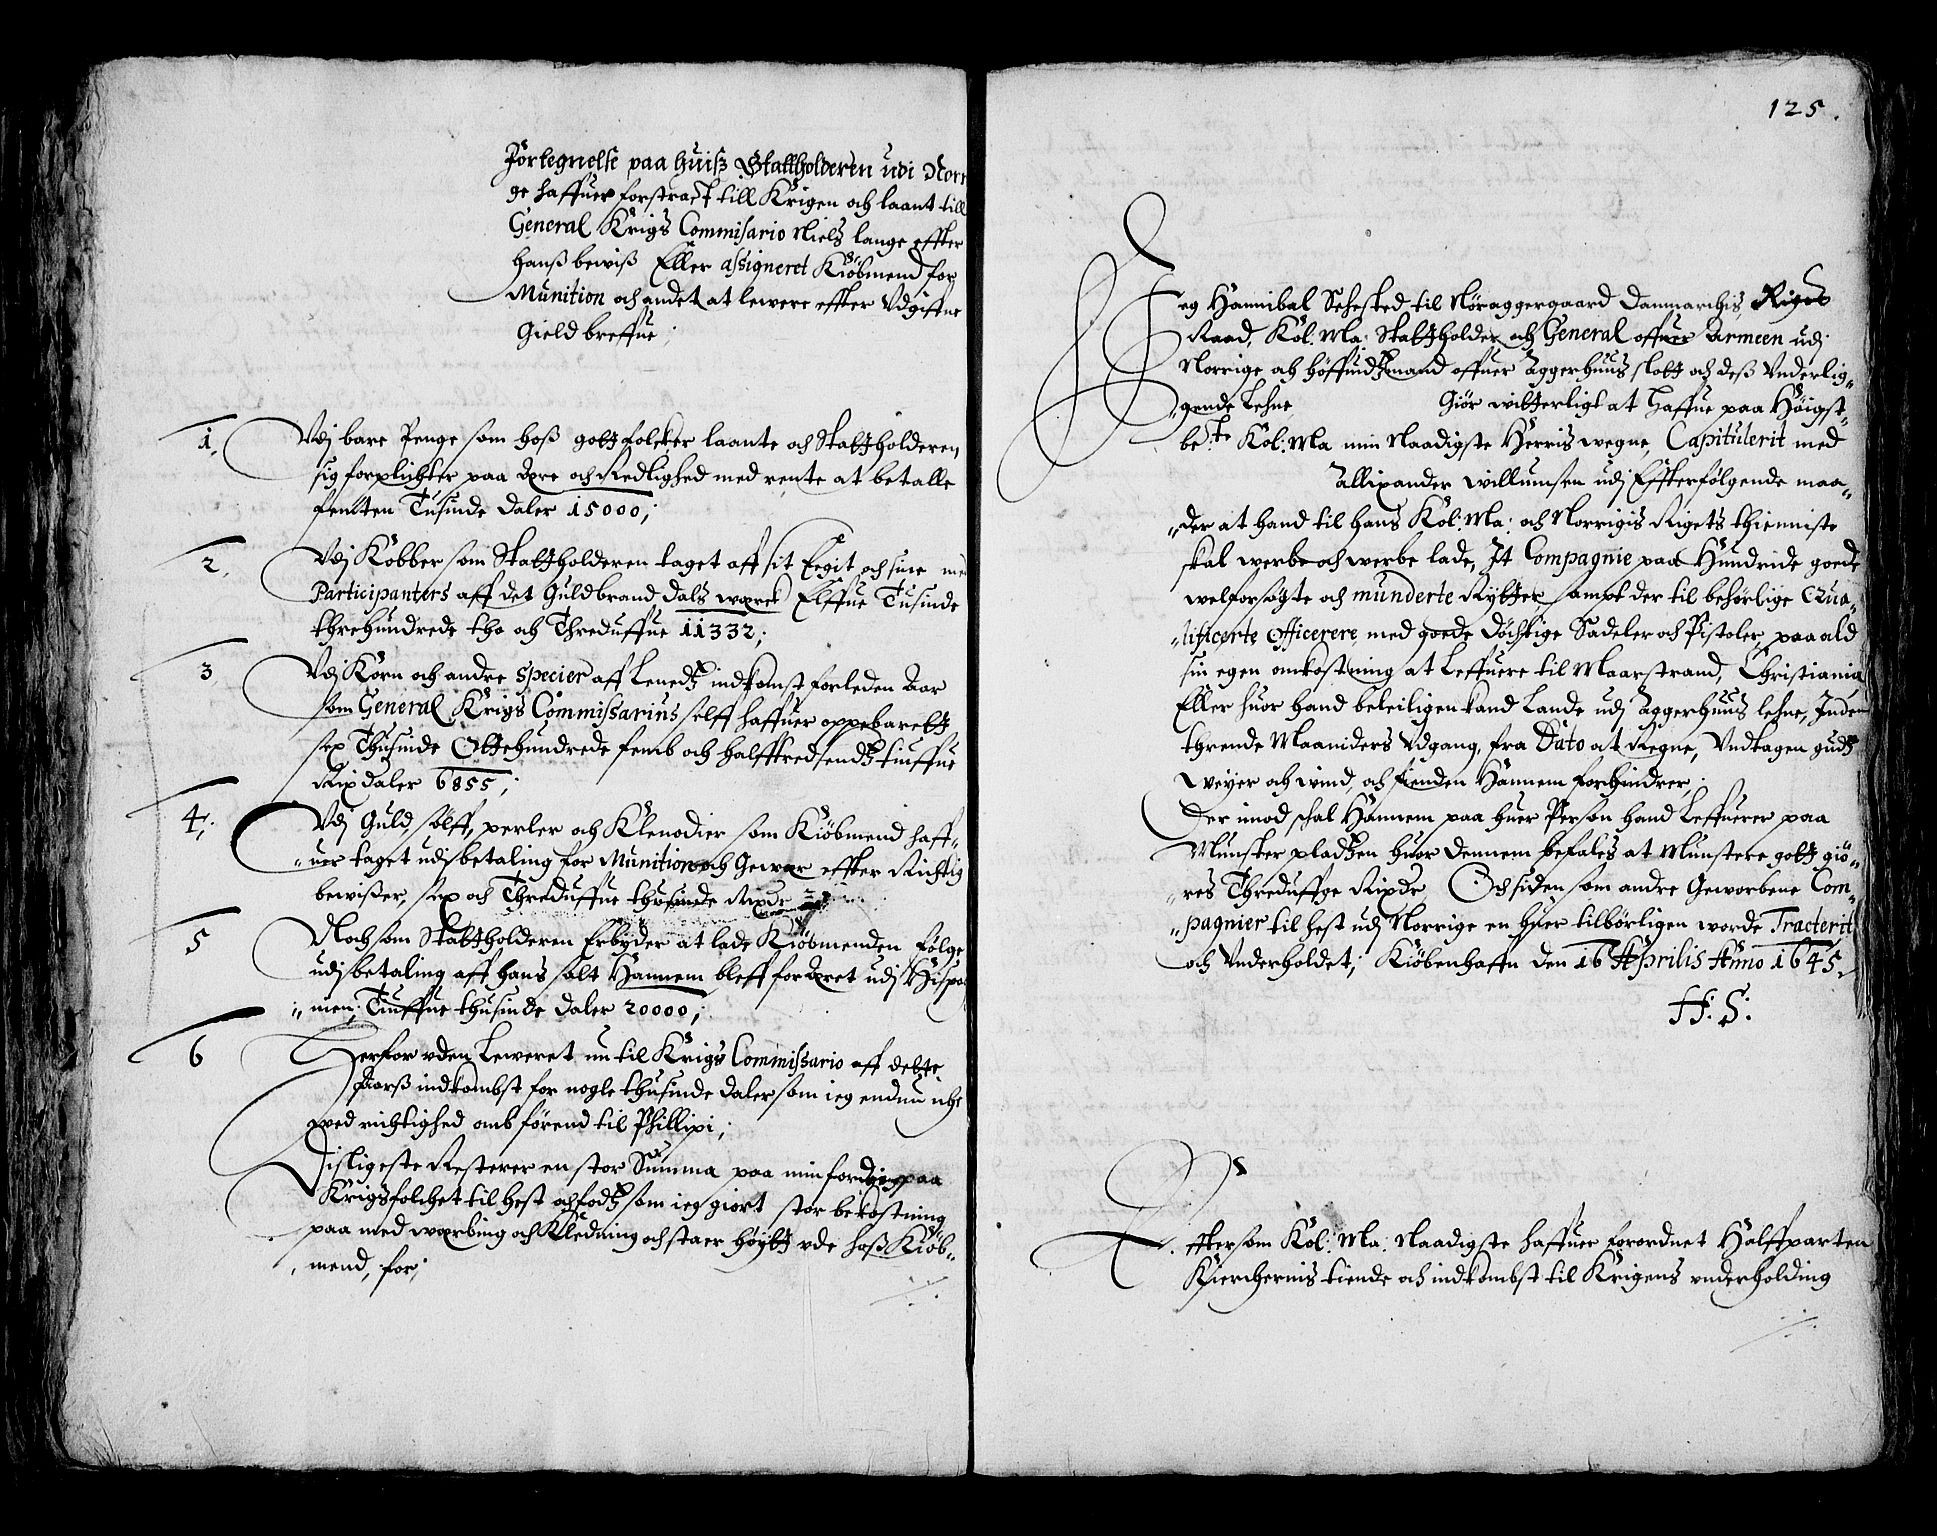 Fortegnelse paa huiß Stattholderen udi Nor
ge haffuer forstract till Krigen och laant till
General Krigs Commissario Niels lange effter
hanß beviß Eller assigneret Kiöbmend for
Munition och andet at lewere effter Vdgiffne
Gield breffue;
1. Vdj bare Penge som hoß gott folcker laante och Stattholderen,
sig forplichter paa ære och Redlighed med rente at betalle
femten Tusinde daler 15000;
2. Vdj Kobber som Stattholderen taget aff sit Eegit och sine
Participanters aff det Guldbrand dals værck Elffue Tusinde
threhundrede tho och Threduffue 11332;
3 Vdj Korn och andre Specier aff Lenedtz indkomst forleden Aar
som General Krigs Commissarius self haffuer oppebarett
sex Thusinde Ottehundrede femb och halfftredsendtz tiuffue
Rixdaler 6855;
4; Vdj Guld, sölff, perler och Klenodier som Kiöbmend haff-
uer taget udj betaling for Munition och Gewær effter Richtig
bevißer, sex och Threduffue thusinde Rixdr
5 Noch som Stattholderen Erbyder at lade Kiöbmenden følge
udj betaling aff hans salt Hannem bleff foræret udj Hispa
nien; Tiuffue thusinde daler 20000;
6 Herfor uden Leweret nu til Krigs Commissario aff dette
Aarß indkombst for nogle thusinde daler som ieg endnu iche
ved richtighed omb förend til Phillipi;
Disligeste Resterer en stor Summa paa min fordring paa
Krigsfolchet til hest och fodtz som ieg giort stor bekostning
paa med wærbing och Kledning och staer høytt ude hoß Kiöb-
mend, for;
125.
Jeg Hannibal Sehested til Nöraggergaard Danmarchis Riges
Raad, Kol: Ma: Stattholder och General offuer Armeen udj
Norrige och höffuidtzmand offuer Aggerhuus slott och deß Vnderlig-
gende Lehne, Giör witterligt at haffue paa Höigst-
be.te Kol: Ma min Naadigste Herris wegne, Capitulerit med
Allixander willumsen udj Effterfölgende maa-
der at hand til hans Kol: Ma: och Norrigis Rigets thienniste
skal werbe och werbe lade, It Compagnie paa Hundride goede
welforsøgte och munderte Rytter, sampt der til behörlige Qua-
lificerte Officerere, med goede Döchtige Sadeler och Pistoler, paa ald
sin egen omkostning at Leffuere til Maarstrand, Christiania
Eller huor hand beleiligen kand Lande udj Aggerhuus lehne, Inden
thrende Maaniders Vdgang, fra Dato at Regne, Vndtagen gudtz
weyer och wind, och fienden Hannem forhindrer;
Der imod schal Hannem paa huer Person hand Leffuerer paa
Munster pladtzen huor dennem befales at Munstere gott giö-
res Threduffge Rixdr Och siden som andre Geworbene Com-
pagnier til hest udj Norrige en huer tilbörligen worde Tracterit
och Vnderholdet; Kiöbenhaffn den 16 Aprilis Anno 1645.
H: S:
Effter som Kol: Ma: Naadigste haffuer forordnet Halffparten
Kierchernis tiende och indkombst til Krigens vnderholding